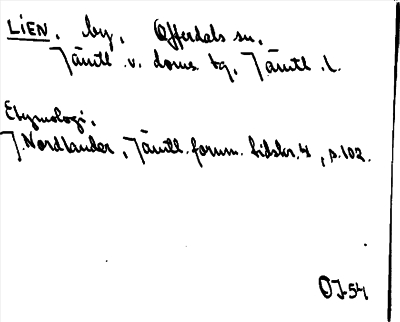 LIEN, by, Offerdals sn,
Jämtl. v. doms. tg, Jämtl. l.
Etymologi.
J. Nordlander, Jämtl. fornm. tidskr. 4, s. 102.
OJ-54